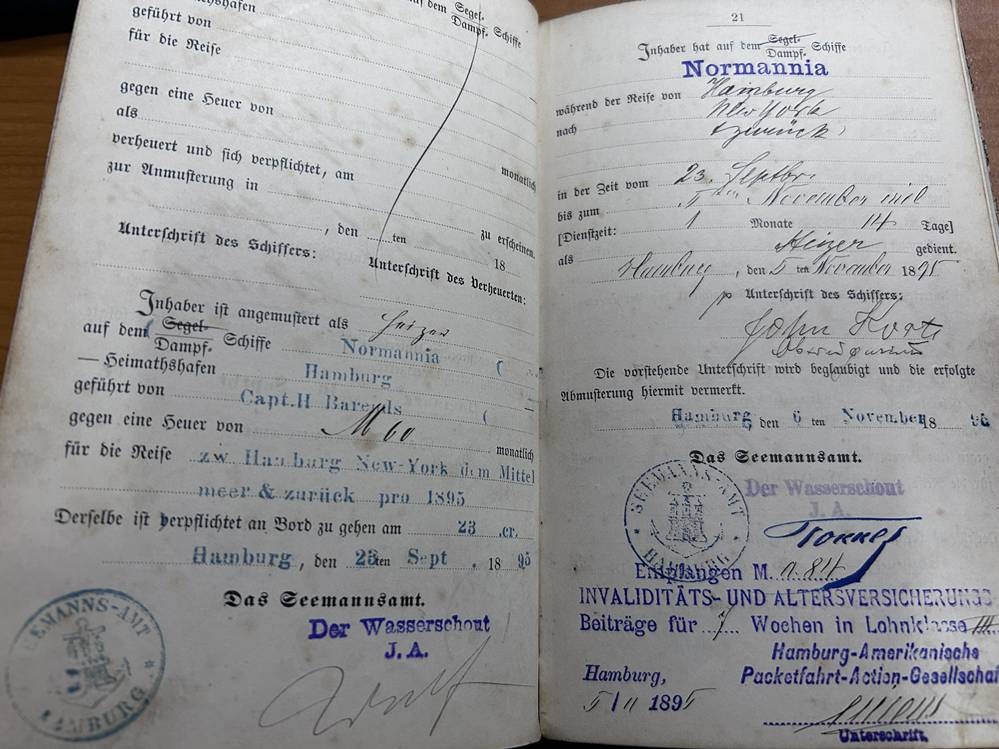 auf dem Segel-
Dampf- Schiffe
geführt von
für die Reise
gegen eine Heuer von
als
monatlich
verheuert und sich verpflichtet, am
zur Anmusterung in
, den ten 18 zu erscheinen.
Unterschrift des Schiffers: Unterschrift des Verheuerten:
Inhaber ist angemustert als Heizer
auf dem Segel-
Dampf- Schiffe Normannia
Heimathshafen Hamburg
geführt von Capt. H Barends
gegen eine Heuer von M 60 monatlich
für die Reise zw Hamburg New-York dem Mittel
meer & zurück pro 1895
Derselbe ist verpflichtet an Bord zu gehen am 23 .cr.
Hamburg, den 23ten Sept. 1895
Das Seemannsamt.
Der Wasserschout
J.A.
SEEMANNS-AMT
HAMBURG
21
Inhaber hat auf dem Segel-
Dampf- Schiffe
Normannia
während der Reise von Hamburg
nach New York
& zurück
in der Zeit vom 23. Septbr.
bis zum 5ten November incl
[Dienstzeit: 1 Monate 14 Tage]
als Heizer gedient.
Hamburg, den 5ten November 1895
p Unterschrift des Schiffers:
John
Die vorstehende Unterschrift wird beglaubigt und die erfolgte
Abmusterung hiermit vermerkt.
Hamburg den 6 ten November 18 95
Das Seemannsamt.
SEEMANNS-AMT
HAMBURG
Der Wasserschout
J.A.
Empfangen M. 1.84
INVALIDITÄTS- UND ALTERSVERSICHERUNGS
Beiträge für 7 Wochen in Lohnklasse III
Hamburg-Amerikanische
Packetfahrt-Action-Gesellschaf
Hamburg,
5/11 1895
Unterschrift.